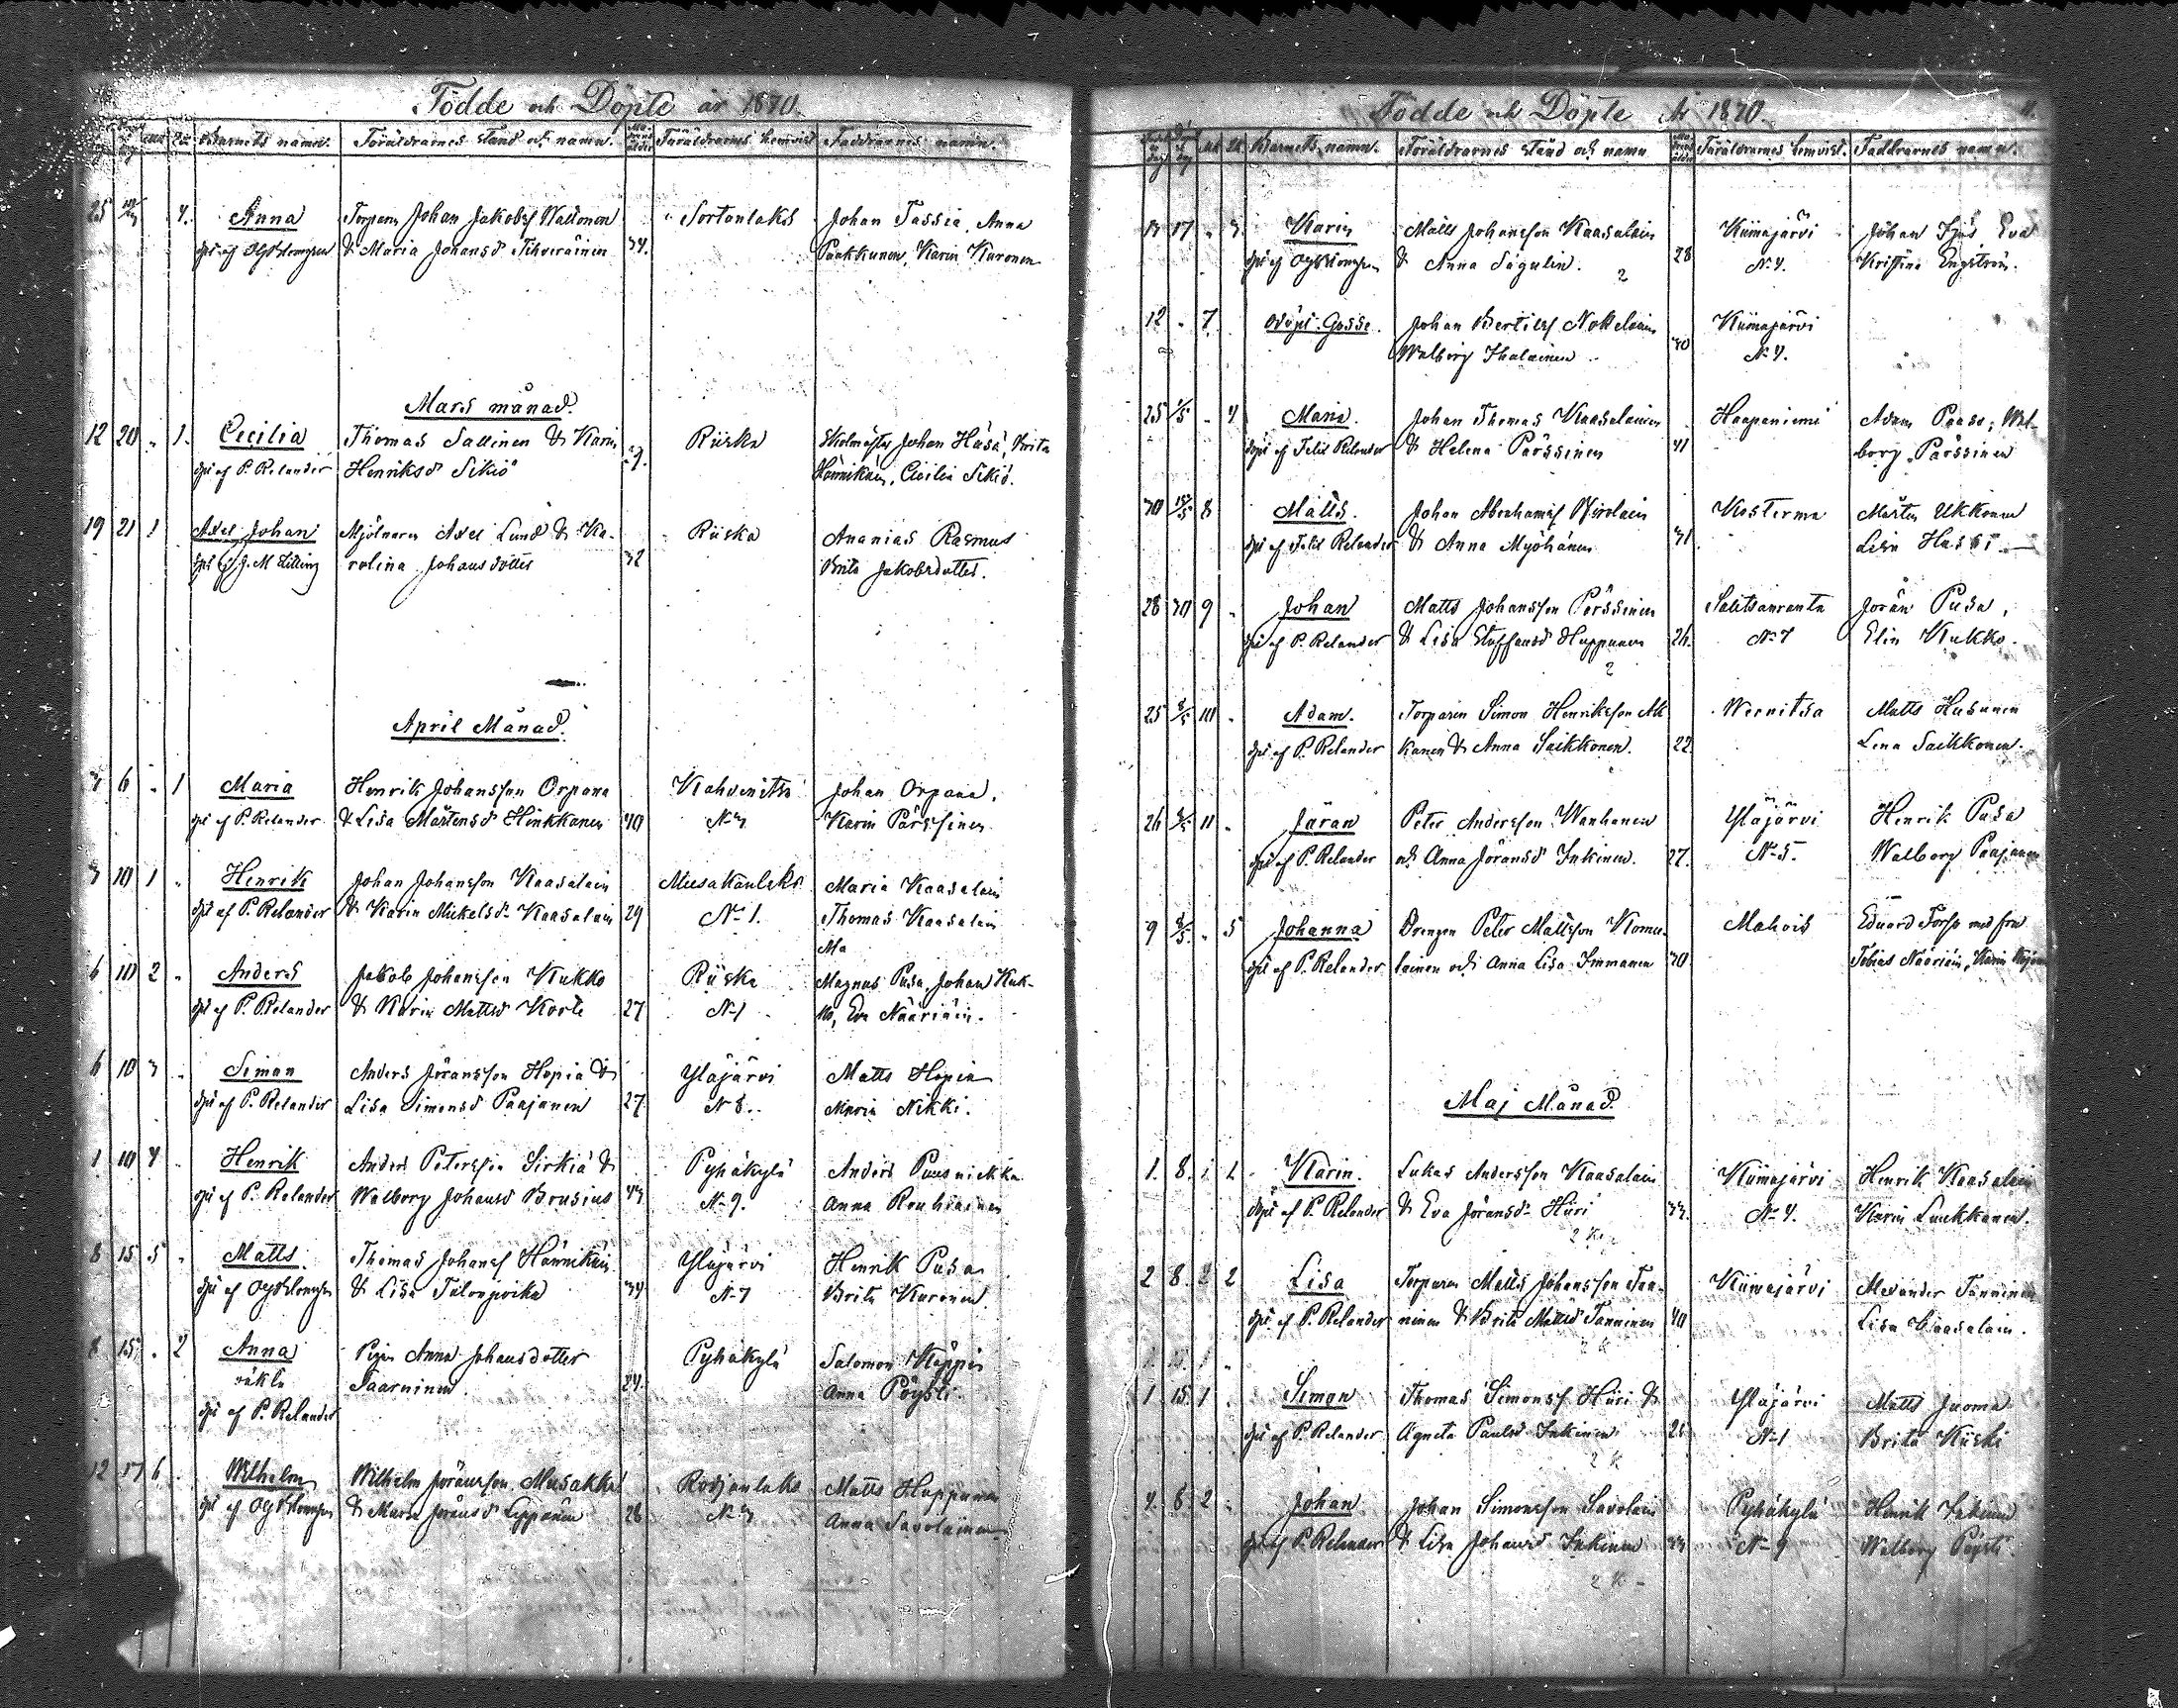 Födde och Döpte år 1870.
Barnets namn. Föräldrarnes stånd och namn. Föräldrarnes hemvist Faddrarnes namn.
25 4. Anna Torparen Johan Jakobsf Waltonen Sortanlaks Johan Tassia, Anna
döpt af & Maria Johansd Tihveräinen 34. Paakkunen, Karin Kuronen
Mars månad.
12 20 " 1. Cecilia Thomas Sallinen & Karin Riiska Johan Häsä, Brita
döpt af P. Relander Henriksd Sikiö Hännikäin, Cecilia Sikiö.
19 21 1 Axel Johan Mjölnaren Axel Lund & Ka- Riiska Ananias Rasmus
döpt af J. M. rolina Johansdotter 32 Brita Jakobsdotter.
April Månad.
3 6 " 1 Maria Henrik Johansson Orpana Kahvenitsa Johan Orpana,
döpt af P. Relander & Lisa Mårtensd Hinkkanen 40 No 3 Karin Pärssinen
3 10 1 " Henrik Johan Johansson Kaasalain Musakanlaks Maria Kaasalain
döpt af P. Relander & Karin Mickelsd Kaasalain 29 No 1. Thomas Kaasalain
Ma
6 10 2 " Anders Jakob Johansson Kukko Riiska Magnus Pusa, Johan Kuk-
döpt af P. Relander & Karin Mattsd Korte 27 No 1 ko, Eva Nääriäin.
6 10 3 " Simon Anders Jöransson Hopia & Yläjärvi Matts Hopia
döpt af P. Relander Lisa Simonsd Paajanen 27 No 8. Maria Nikki.
1 10 4 " Henrik Anders Petersson Sirkiä & Pyhäkylä Anders Puusniekka
döpt af P. Relander Walborg Johansd Brusius 43 No 9. Anna Rouhiainen
8 15 5 " Matts. Thomas Johansf Hännikäin Yläjärvi Henrik Pusa
döpt af & Lisa Talonpoika 34 No 7 Brita Kuronen
8 15 " 2 Anna Pigan Anna Johansdotter Pyhäkylä Salomon Käppi
oäkta Saarninen. 24. Anna Pöysti.
döpt af P. Relander
12 17 6 Wilhelm Wilhelm Jöransson Musakka Rodjanlaks Matts Huppunen
döpt af & Maria Jöransd Lipponen 26 No 3 Anna Savolainen
Födde och Döpte År 1870. 11.
Barnets namn. Föräldrarnes stånd och namn Föräldrarnes hemvist. Faddrarnes namn.
13 17 " 3 Karin Matts Johansson Kaasalain Kiimajärvi Johan Eva
döpt af & Anna Sägulin. 28 No 4. Kristina Engström.
2
12 " 7 odöpt Gosse. Johan Bertilsf Nokelain Kiimajärvi
Walborg Ihalainen 30 No 4.
25 1/5 " 4 Maria. Johan Thomas Kaasalainen Haapaniemi Adam Paaso, Wal-
döpt af Felix Relander & Helena Pärssinen 41 borg Pärssinen
30 15/5 8 Matts. Johan Abrahamsf Kosterma Mårten Ukkonen
döpt af Felix Relander & Anna Myöhänen 31 Lisa Hassi
28 30 9 " Johan Matts Johansson Pärssinen Saitsanranta Jöran Pusa,
döpt af P. Relander & Lisa Staffansd Huppunen 26. No 7 Elin Kukko.
2
25 8/5 10 " Adam. Torparen Simon Henriksson Ak Wernitsa Matts Husunen
döpt af P. Relander kanen & Anna Saikkonen. 22 Lena Saikkonen.
26 8/5 11 " Jöran Peter Andersson Wanhanen Yläjärvi Henrik Pusa
döpt af P. Relander och Anna Jöransd Inkinen. 27. No 5. Walborg Paajanen
9 8/5 " 5 Johanna Drengen Peter Mattsson Komu- Mahois Eduard med fru
döpt af P. Relander lainen och Anna Lisa Immanen 30 Tobias Nääriäin, Karin
Maj Månad.
1. 8. " 1 Karin. Lukas Andersson Kaasalain Kiimajärvi Henrik Kaasalain
döpt af P. Relander & Eva Jöransd Hiiri 33. No 4. Karin Luukkanen.
2 K
2 8. 2 Lisa Torparen Matts Johansson Tan- Kiimajärvi Alexander Tanninen
döpt af P. Relander ninen & Brita Mattsd Tanninen 40 Lisa Kaasalain.
2 K
1 15 1 "
1 15 1 " Simon Thomas Simonsf Hiiri & Yläjärvi Matts Juoma
döpt af P. Relander Agneta Paulsd Inkinen No 1 Brita Kiiski
2 K
4. 8 2 " Johan Johan Simonsson Savolain Pyhäkylä Henrik Inkinen
döpt af P. Relander & Lisa Johansd Inkinen 33 No 9 Walborg Pöysti.
2 K